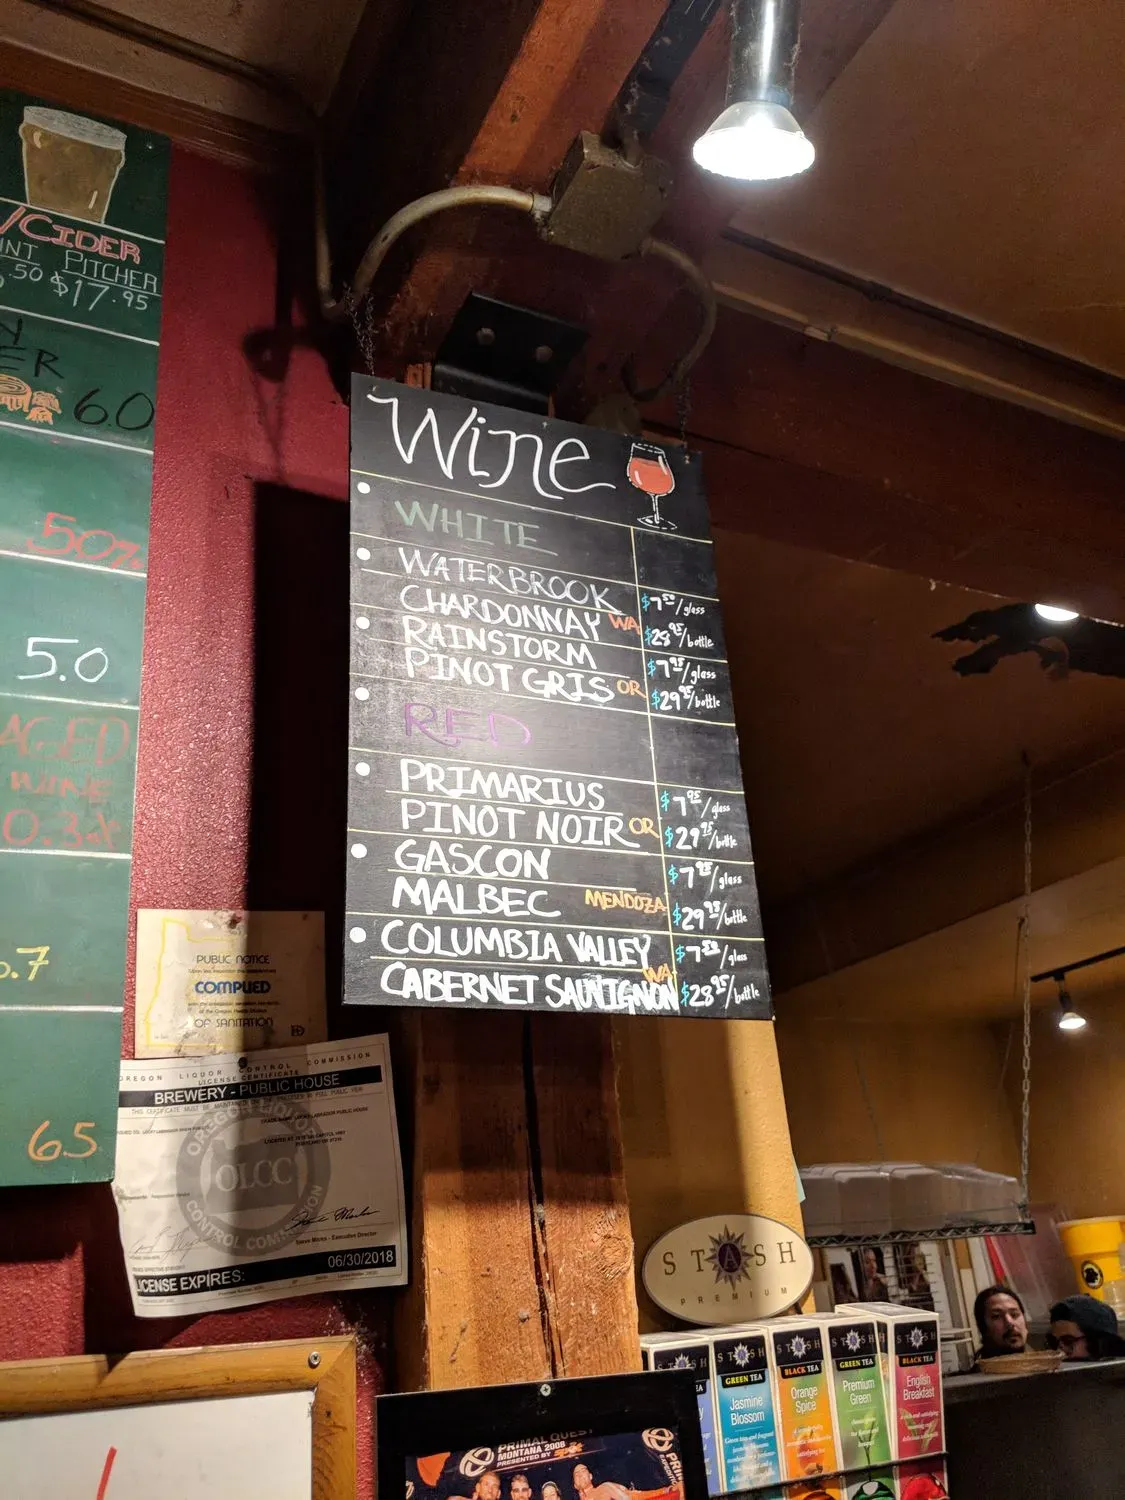 /CIDER
PITCHER
.50 $17.95
ER
6.0
50%
5.0
AGED
WINE
0.3
.7
65
Wine
WHITE
WATERBROOK $7.50/glass
CHARDONNAY WA $28.95/bottle
RAINSTORM $7.95/glass
PINOT GRIS OR $29.95/bottle
RED
PRIMARIUS $7.95/glass
PINOT NOIR OR $29.95/bottle
GASCON $7.95/glass
MALBEC MENDOZA $29.95/bottle
COLUMBIA VALLEY $7.50/glass
CABERNET SAUVIGNON WA $28.95/bottle
PUBLIC NOTICE
COMPLIED
OF SANITATION
OREGON LIQUOR CONTROL COMMISSION
LICENSE CERTIFICATE
BREWERY - PUBLIC HOUSE
OREGON LIQUOR
OLCC
CONTROL COMMISSION
Steve Marks - Executive Director
LICENSE EXPIRES: 06/30/2018
STASH
PREMIUM
STASH
GREEN TEA
Jasmine
Blossom
STASH
BLACK TEA
Orange
Spice
STASH
GREEN TEA
Premium
Green
STASH
BLACK TEA
English
Breakfast
PRIMAL QUEST
MONTANA 2008
PRESENTED BY